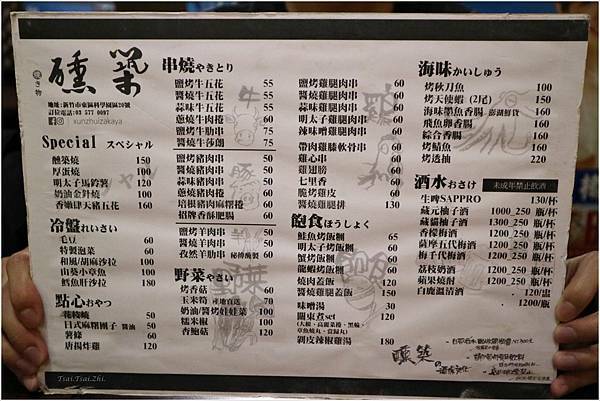 燒き物
醺築
地址:新竹市東區科學園區20號
訂位電話:03 577 0097
xunzhuizakaya
Special スペシャル
醃菜筑 150
厚蛋燒 100
明太子馬鈴薯 120
奶油金針燒 100
香嫩肆天豬五花 160
冷盤 れいさい
毛豆 60
特製泡菜 60
和風/胡麻沙拉 100
山葵小章魚 100
鱈魚肝沙拉 180
點心 おやつ
花枝崎 50
日式麻糬團子 醬油 50
薯條 60
唐揚炸雞 120
串燒 やきとり
鹽烤牛五花 55
醬燒牛五花 55
蒜味牛五花 55
蔥燒牛肉捲 60
鹽烤牛肋串 75
醬燒牛莎朗 75
鹽烤豬肉串 50
醬燒豬肉串 50
蒜味豬肉串 50
蔥燒豬肉捲 60
培根豬肉麻糬捲 60
招牌香酥肥腸 60
鹽烤羊肉串 50
醬燒羊肉串 50
孜然羊肋串 秘傳醃製 60
野菜 やさい
烤香菇 50
玉米筍 產地直送 70
奶油/醬烤娃娃菜 100
糯米椒 100
杏鮑菇 100
鹽烤雞腿肉串 60
醬燒雞腿肉串 60
蒜味雞腿肉串 60
明太子雞腿肉串 60
辣味啃雞腿肉串 60
帶肉雞膝軟骨串 60
雞心串 60
雞翅膀 60
七里香 60
脆烤雞皮 60
醬燒雞腿排 130
飽食 ほうしょく
鮭魚烤飯糰 65
明太子烤飯糰 65
蟹烤飯糰 60
龍蝦烤飯糰 60
燒肉蓋飯 150
醬燒雞腿蓋飯 150
味噌湯 30
關東煮set 120
剝皮辣椒雞湯 180
海味 かいしゅう
烤秋刀魚 100
烤天使蝦 (2尾) 150
海味墨魚香腸 澎湖鮮貨 160
飛魚卵香腸 160
綜合香腸 160
烤鯖魚 160
烤透抽 220
酒水 おさけ 未成年禁止飲酒
生啤SAPPRO 130/杯
藏元柚子酒 1000_250 瓶/杯
藏貓柚子酒 1300_250 瓶/杯
香檬梅酒 1200_250 瓶/杯
薩摩五代梅酒 1200_250 瓶/杯
梅子代梅酒 1200_250 瓶/杯
荔枝奶酒 1200_250 瓶/杯
蘋果燒酎 1200_250 瓶/杯
白鹿溫清酒 . 120/壺
. 1200/瓶
醺築
Tsai.Tsai.Zhi.